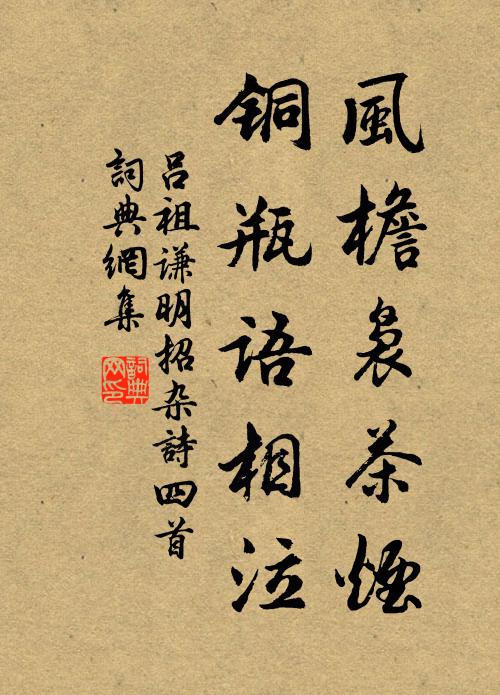 風檐裊茶煙
铜瓶語相泣
吕祖谦明招杂詩四首
詞典網集
詞典
网印